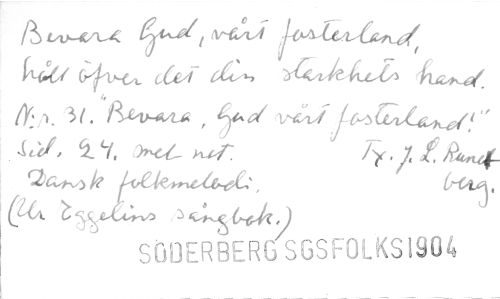 Bevara Gud, vårt fosterland,
håll öfver det din starkhets hand.
N:r. 31. "Bevara, Gud vårt fosterland!"
Sid. 24. met not. Tx. J. L. Runeberg.
Dansk folkmelodi.
(Ur Eggelins sångbok.)
SÖDERBERG SGSFOLKS1904